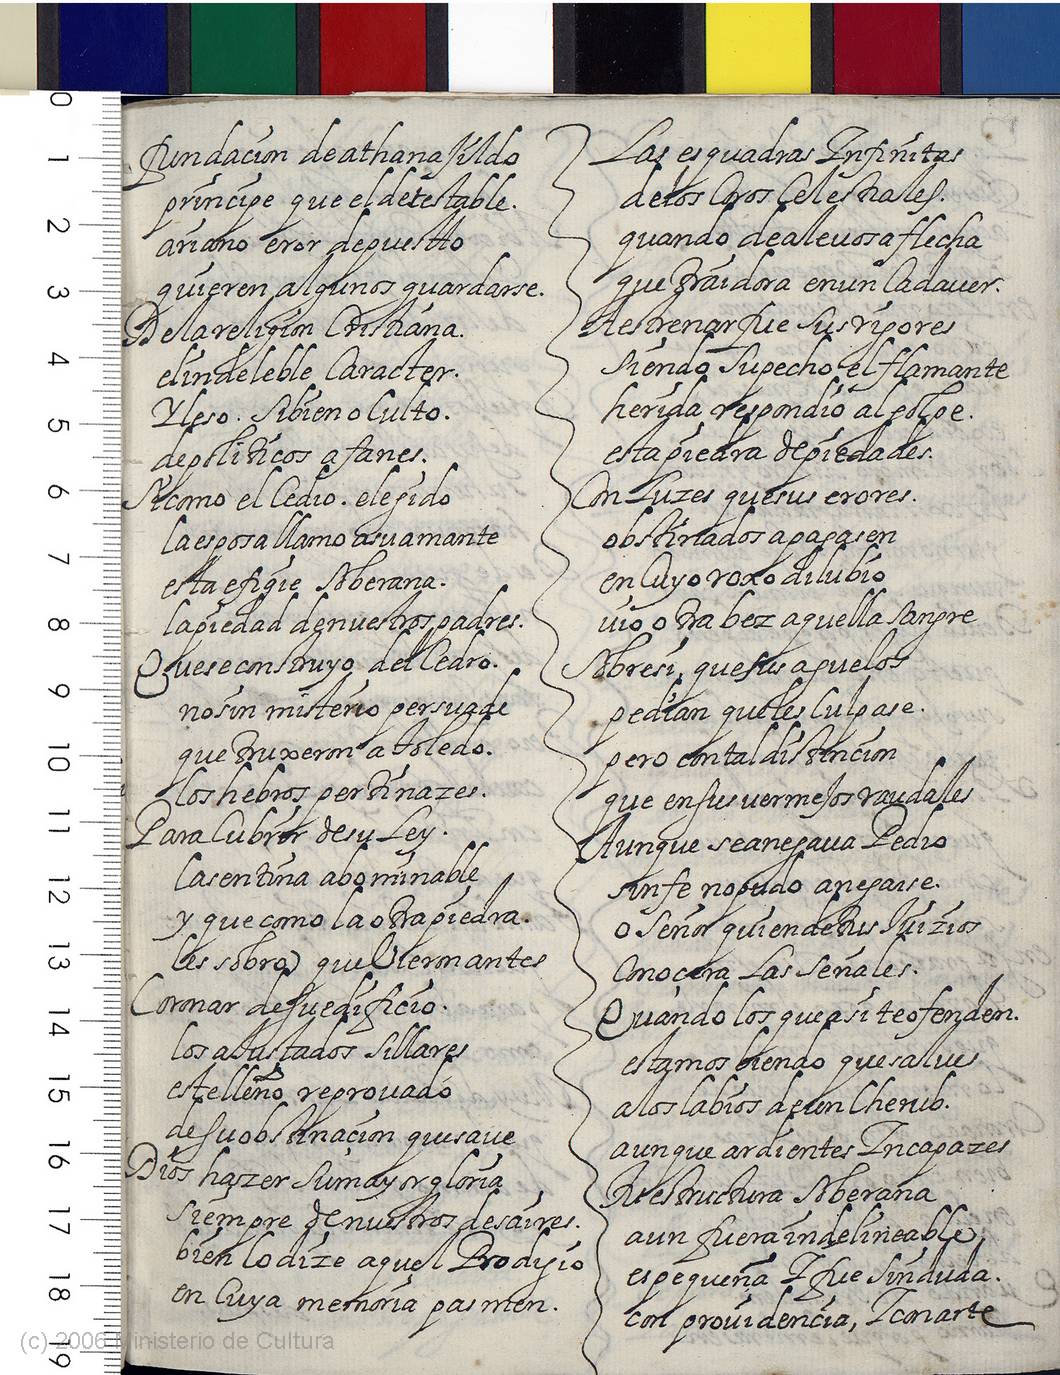 fundacion de athanaJildo
principe que el detestable.
ariano eror depuesto
quieren algunos guardarse.
De la religion Cristiana.
el indeleble Caracter.
Y leso. Si bien oCulto.
de politicos afanes.
Si como el Cedro. elegido
la esposa llamo a su amante
esta efigie Soberana.
la piedad de nuestros padres.
Que se construyo del Cedro.
no sin misterio persuade
que truxeron a toledo.
los hebros pertinazes.
Para Cubrir de su Ley.
la sentina abominable
y que como la otra piedra.
les sobro) que
Coronar de su edificio.
los aJustados Sillares
este lleño reprovado
de su obstinacion que save
Dios hazer su mayor gloria
siempre de nuestros desaires.
bien lo dize aquel Prodijio
en Cuya memoria pasmen.
Las esquadras Infinitas
de los Coros Celestiales.
quando de alevosa flecha
que traidora en un Cadaver.
estrenar fue sus rigores
siendo Su pecho el flamante
herida respondio al golpe.
esta piedra de piedades.
Con Luzes que sus erores.
obstinados apagasen
en Cuyo roxo dilubio
vio otra bez aquella Sangre
Sobre si, que sus aguelos
pedian que les Culpase.
pero con tal distincion
que en sus vermeJos raudales
Aunque se anegava Pedro
sin fe no pudo anegarse.
o Señor quien de tus Juizios
Conocera Las Señales.
Quando los que asi te ofenden.
estamos biendo que salve
a los labios de un Cherub.
aunque ardientes Incapazes
Su estructura Soberana
aun fuera indelineable,
es pequeña I fue sin duda.
con providencia, I con arte
(c) 2006 Ministerio de Cultura
0
1
2
3
4
5
6
7
8
9
10
11
12
13
14
15
16
17
18
19